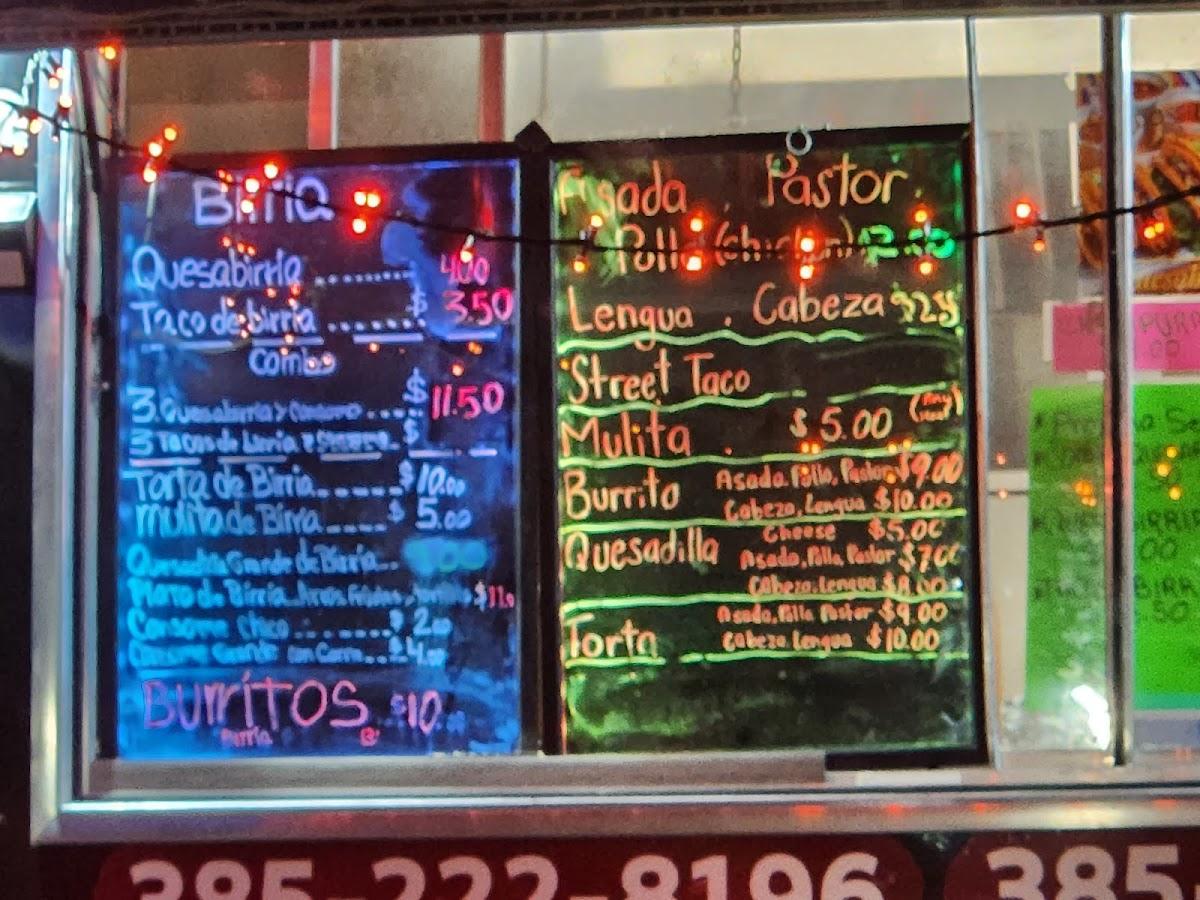 Birria
Quesabirria ........ 4.00
Taco de birria ...... $ 3.50
Combo
3 Quesabirria y Consome .... $ 11.50
3 Tacos de birria y Consome.. $
Torta de Birria...... $10.00
Mulita de Birria .... $ 5.00
Quesadilla Grande de Birria..
Plato de Birria $11.0
Consome chico ....... $ 2.00
Consome Grande con Carne... $4.00
BURRITOS $10.00
Birria
Asada . Pastor
Pollo (chicken)
Lengua . Cabeza
Street Taco
Mulita . $ 5.00
Burrito Asada, Pollo, Pastor $9.00
Cabeza, Lengua $10.00
Quesadilla Cheese $5.00
Asada, Pollo, Pastor $7.00
Cabeza, Lengua $8.00
Torta Asada, Pollo Pastor $9.00
Cabeza, Lengua $10.00
385-222-8196 385-